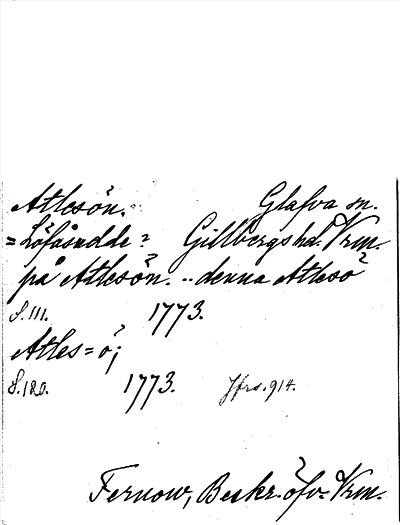 Atlesön. Glafva sn.
=Löfåsudde= Gillbergs hd. Vrm.
på Atlesön. .. denna Atlesö
S. 111. 1773.
Atles=ö;
S. 120. 1773. Jfrs. 914.
Fernow, Beskr. öfv. Vrm.